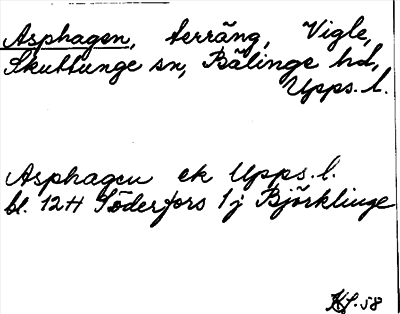 Asphagen, terräng, Vigle,
Skuttunge sn, Bälinge hd,
Upps. l.
Asphagen ek Upps. l.
bl. 12H Söderfors 1j Björklinge
58